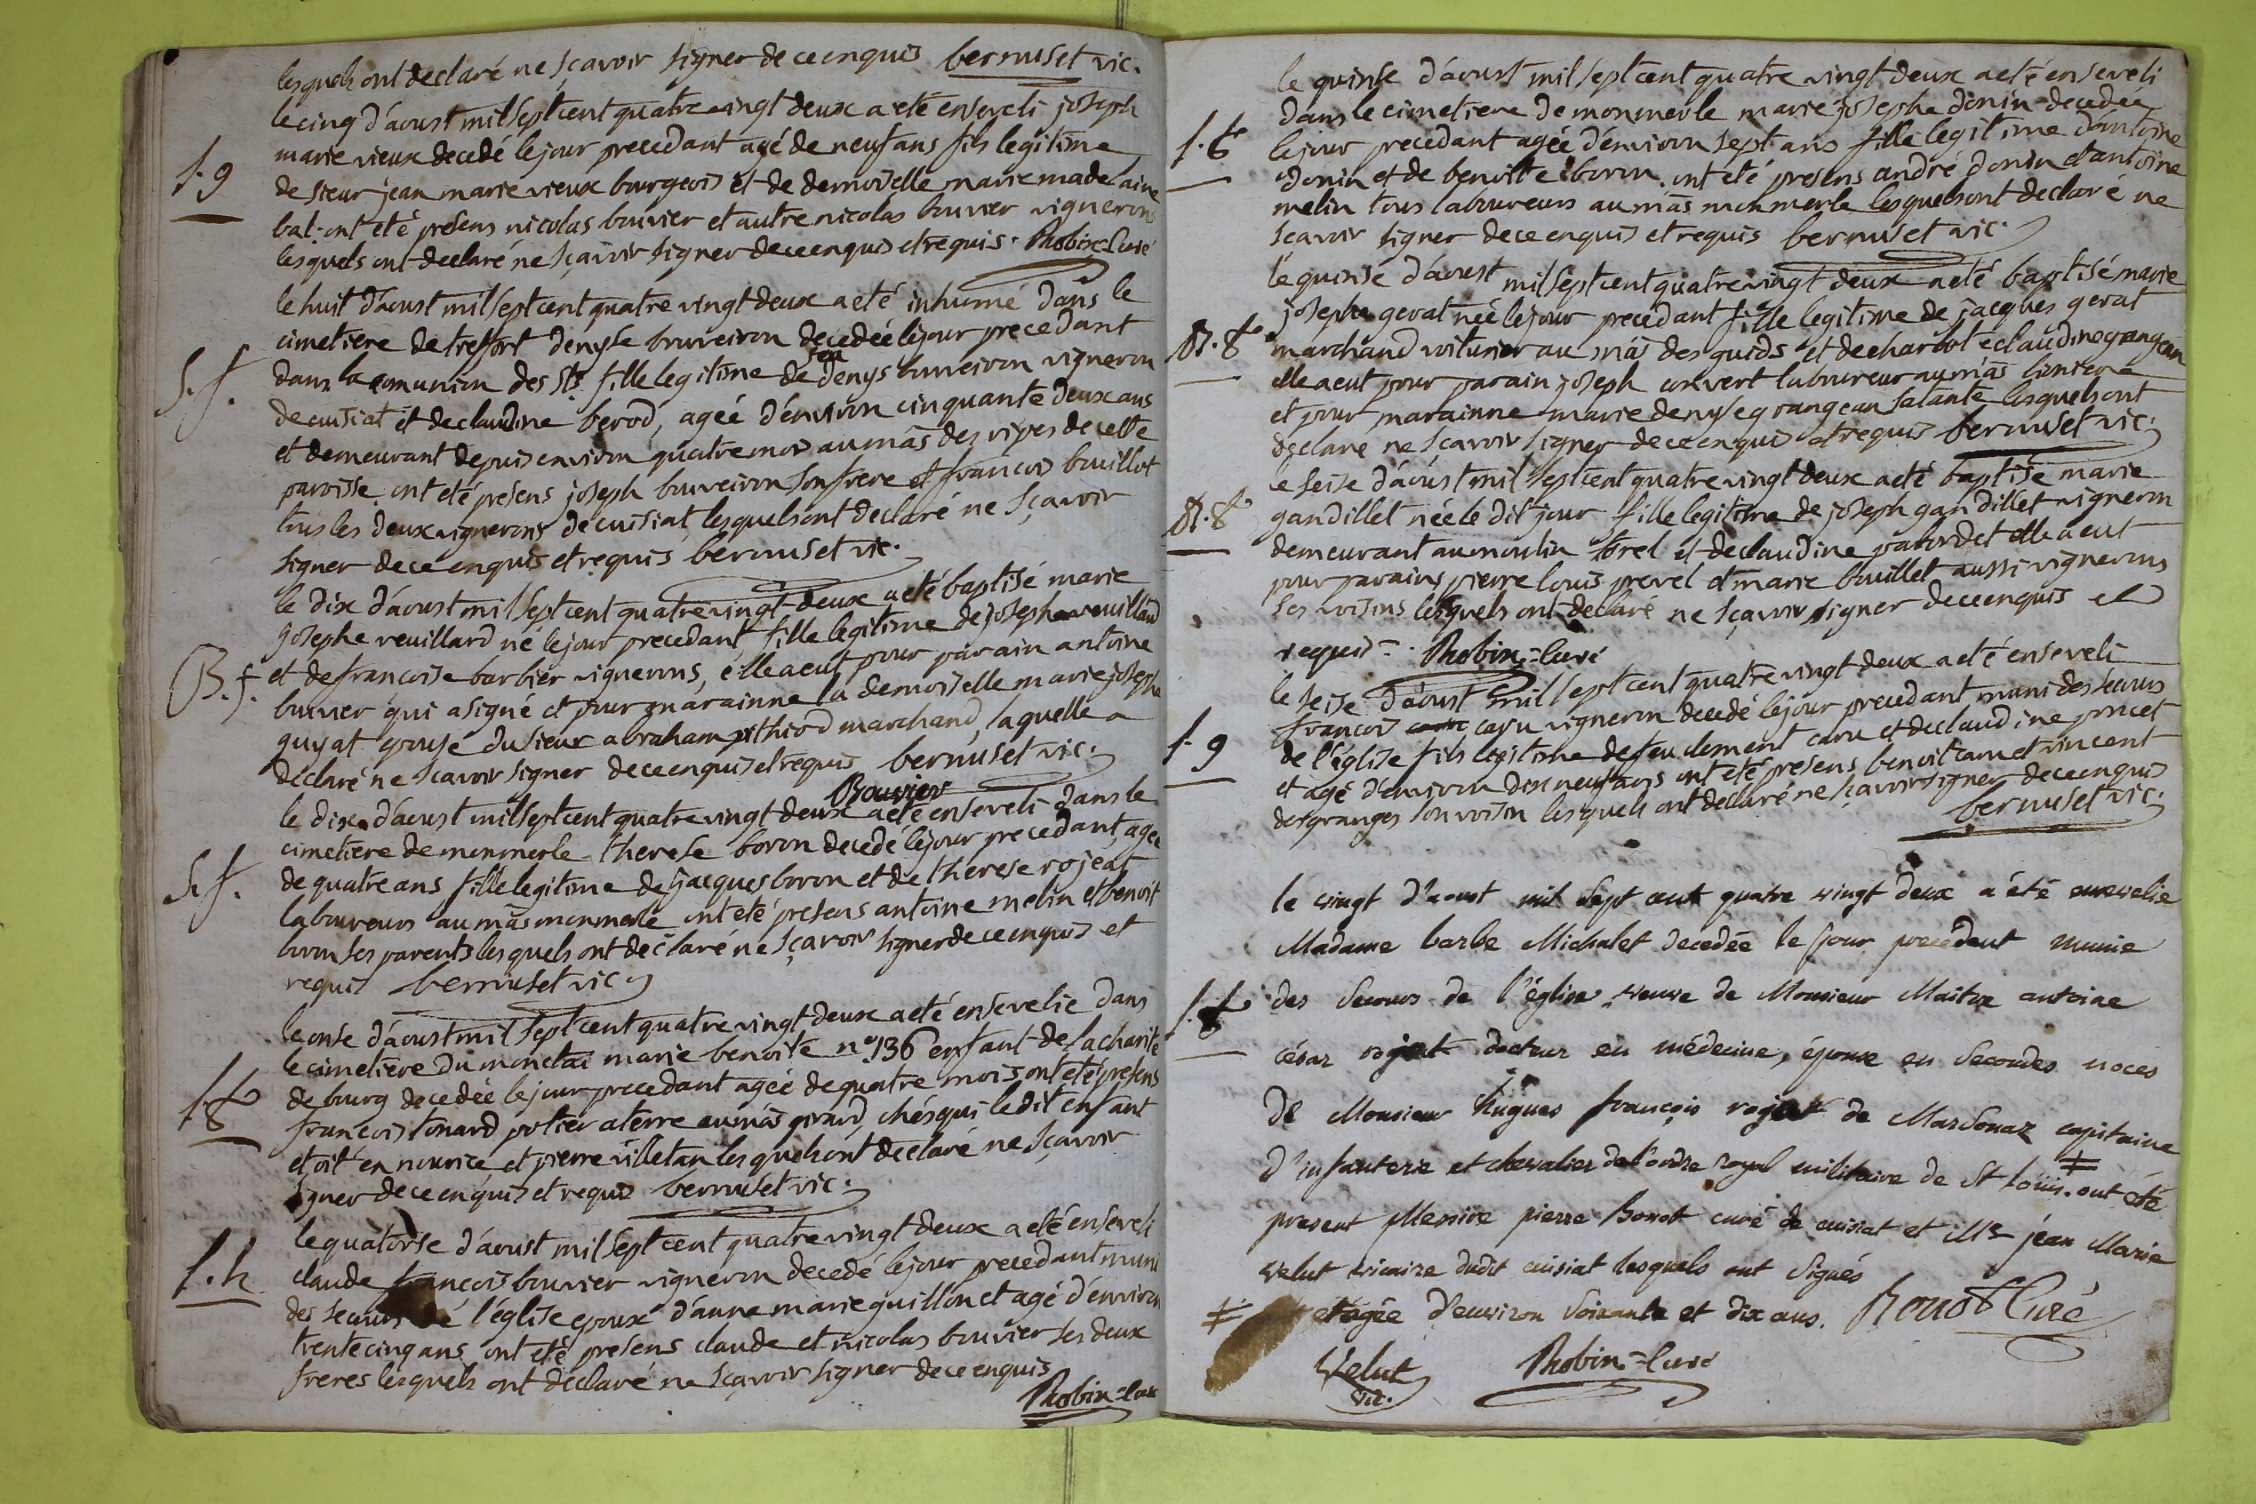 lesquels ont declaré ne sçavoir signer de ce enquis bernuset vic.
le cinq d'aoust mil sept cent quatre vingt deux a eté enseveli joseph
marie vieux decedé le jour precedant agé de neuf ans fils legitime
S. g
de sieur jean marie vieux bourgeois et de demoiselle marie madelaine
bal. ont eté presens nicolas bouvier et autre nicolas bouvier vignerons
lesquels ont declaré ne sçavoir signer de ce enquis et requis. Robin=Curé
le huit d'aoust mil sept cent quatre vingt deux a eté inhumé dans le
cimetiere de treffort denyse bouveiron decedée le jour precedant
S. f.
dans la comunion des sts. fille legitime de feu denys bouveiron vigneron
de cuisiat et de claudine berod, agée d'environ cinquante deux ans
et demeurant depuis environ quatre mois au mâs des ripes de cette
paroisse ont eté presens joseph bouveiron son frere et francois bouillot
tous les deux vignerons de cuisiat, lesquels ont declaré ne sçavoir
signer de ce enquis et requis bernuset vic.
le dix d'aoust mil sept cent quatre vingt deux a eté baptisé marie
josephe reuillard né le jour precedant, fille legitime de joseph reuillard
B. f.
et de francoise barbier vignerons, elle a eut pour parain antoine
buvier qui a signé et pour marainne la demoiselle marie josephe
guyat epouse du sieur abraham pithiod marchand, laquelle a
declaré ne sçavoir signer de ce enquis et requis bernuset vic.
Bouvier
le dix d'aoust mil sept cent quatre vingt deux a eté enseveli dans le
cimetiere de monmerle therese boron decedé le jour precedant, agée
S. f.
de quatre ans fille legitime de jacques boron et de therese rojeat
laboureurs au mâs monmerle ont eté presens antoine melin et benoit
boron ses parents lesquels ont declaré ne sçavoir signer de ce enquis et
requis bernuset vic
le onse d'aoust mil sept cent quatre vingt deux a eté ensevelie dans
le cimetiere du monclai marie benoite n° 136 enfant de la charité
S. f
de bourg decedée le jour precedant agée de quatre mois ont eté presens
francois tonard potier a terre au mâs girard, chés qui le dit enfant
etoit en nourice et pierre villetan lesquels ont declaré ne sçavoir
signer de ce enquis et requis bernuset vic.
le quatorse d'aoust mil sept cent quatre vingt deux a eté enseveli
S. h
claude francois bouvier vigneron decedé le jour precedant muni
des secours de l'église epoux d'anne marie guillon et agé d'environ
trente cinq ans ont eté presens claude et nicolas bouvier ses deux
freres lesquels ont declaré ne sçavoir signer de ce enquis
Robin=Curé
le quinse d'aoust mil sept cent quatre vingt deux a eté enseveli
dans le cimetiere de monmerle marie josephe donin decedée
S. f
le jour precedant agée d'environ sept ans fille legitime d'antoine
donin et de benoite boron ont eté presens andré donin et antoine
melin tous laboureurs au mâs monmerle lesquels ont declaré ne
sçavoir signer de ce enquis et requis bernuset vic.
le quinse d'aoust mil sept cent quatre vingt deux a eté baptisé marie
josephe gerat née le jour precedant fille legitime de jacques gerat
B. f
marchand voiturier au mâs des guids et de charlote claudine grangean
elle a eut pour parain joseph convert laboureur au mâs
et pour marainne marie denyse grangean sa tante lesquels ont
declare ne sçavoir signer de ce enquis et requis bernuset vic.
le seise d'aoust mil sept cent quatre vingt deux a eté baptisé marie
B. f
gandillet née le dit jour fille legitime de joseph gandillet vigneron
demeurant au moulin torel et de claudine pabordet elle a eut
pour parains pierre louis prevel et marie bouillet aussi vignerons
ses voisins lesquels ont declaré ne sçavoir signer de ce enquis et
requis. Robin=Curé
le seise d'aoust mil sept cent quatre vingt deux a eté enseveli
francois caru vigneron decedé le jour precedant muni des secours
S. g
de l'église fils legitime de feu clement caru et de claudine poncet
et agé d'environ dix neuf ans ont eté presens benoit caru et vincent
desgranges son voisin lesquels ont declaré ne sçavoir signer de ce enquis
bernuset vic.
le vingt d'aoust mil sept cent quatre vingt deux a été ensevelie
Madame barbe Michalet decedée le jour precédent munie
S. f
des secours de l'église, veuve de Monsieur Maitre antoine
césar rojat docteur en médecine, épouse en secondes noces
de Monsieur hugues françois rojat de Mardonaz capitaine
d'infanterie et chevalier de l'ordre royal militaire de St loüis. ‡ ont été
present Messire pierre Bonot curé de cuisiat et Mre jean Marie
velut vicaire dudit cuisiat lesquels ont signés
‡ et agée d'environ soixante et dix ans. Bonot Curé
Velut vic.
Robin=Curé